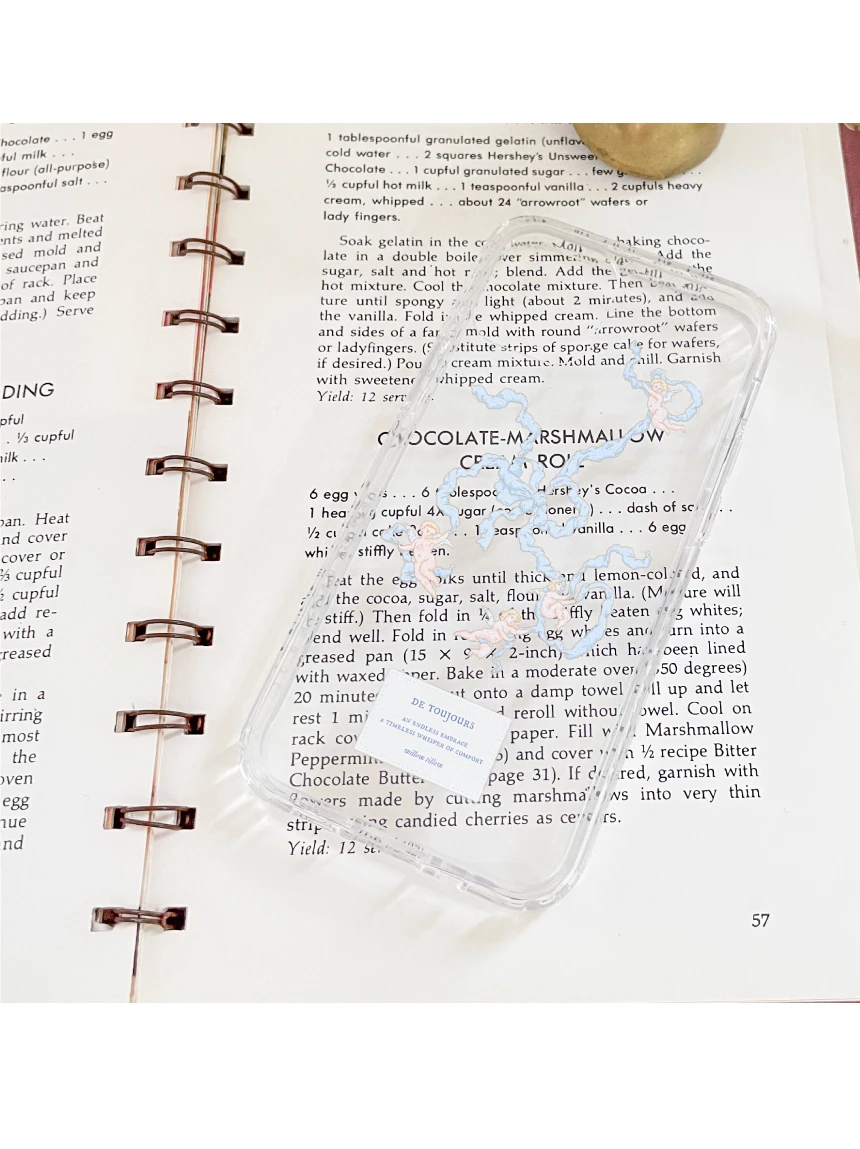 hocolate . . . 1 egg
ful milk . . .
flour (all-purpose)
aspoonful salt . . .
ring water. Beat
ents and melted
sed mold and
saucepan and
of rack. Place
pan and keep
dding.) Serve
DING
pful
. ⅓ cupful
milk . . .
. .
pan. Heat
nd cover
cover or
⅔ cupful
cupful
add re-
with a
reased
in a
irring
most
the
oven
egg
nue
nd
1 tablespoonful granulated gelatin (unflav
cold water . . . 2 squares Hershey's Unswee
Chocolate . . . 1 cupful granulated sugar . . . few g . . .
⅓ cupful hot milk . . . 1 teaspoonful vanilla . . . 2 cupfuls heavy
cream, whipped . . . about 24 "arrowroot" wafers or
lady fingers.
Soak gelatin in the water. baking choco-
late in a double boiler over simmering Add the
sugar, salt and hot ; blend. Add the the
hot mixture. Cool the chocolate mixture. Then
ture until spongy light (about 2 minutes), and
the vanilla. Fold in whipped cream. Line the bottom
and sides of a mold with round "arrowroot" wafers
or ladyfingers. (Substitute strips of sponge cake for wafers,
if desired.) Pour cream mixture. Mold and chill. Garnish
with sweetened whipped cream.
Yield: 12 serv
CHOCOLATE-MARSHMALLOW
CREAM ROLL
6 egg . . . 6 Hershey's Cocoa . . .
1 cupful 4X sugar . . . dash of . .
½ . . . vanilla . . . 6 egg
whi stiffly beaten.
Beat the egg yolks until thick and lemon-colored, and
the cocoa, sugar, salt, flour vanilla. (Mixture will
stiff.) Then fold in ¼ stiffly beaten egg whites;
blend well. Fold in egg whites and turn into a
greased pan (15 X 9 X 2-inch) which has been lined
with waxed paper. Bake in a moderate oven 350 degrees)
20 minutes onto a damp towel roll up and let
rest 1 mi reroll without towel. Cool on
rack paper. Fill with Marshmallow
Peppermin ) and cover with ½ recipe Bitter
Chocolate Butter page 31). If desired, garnish with
flowers made by cutting marshmallows into very thin
strips using candied cherries as centers.
Yield: 12
DE TOUJOURS
AN ENDLESS EMBRACE
A TIMELESS WHISPER OF COMFORT
57